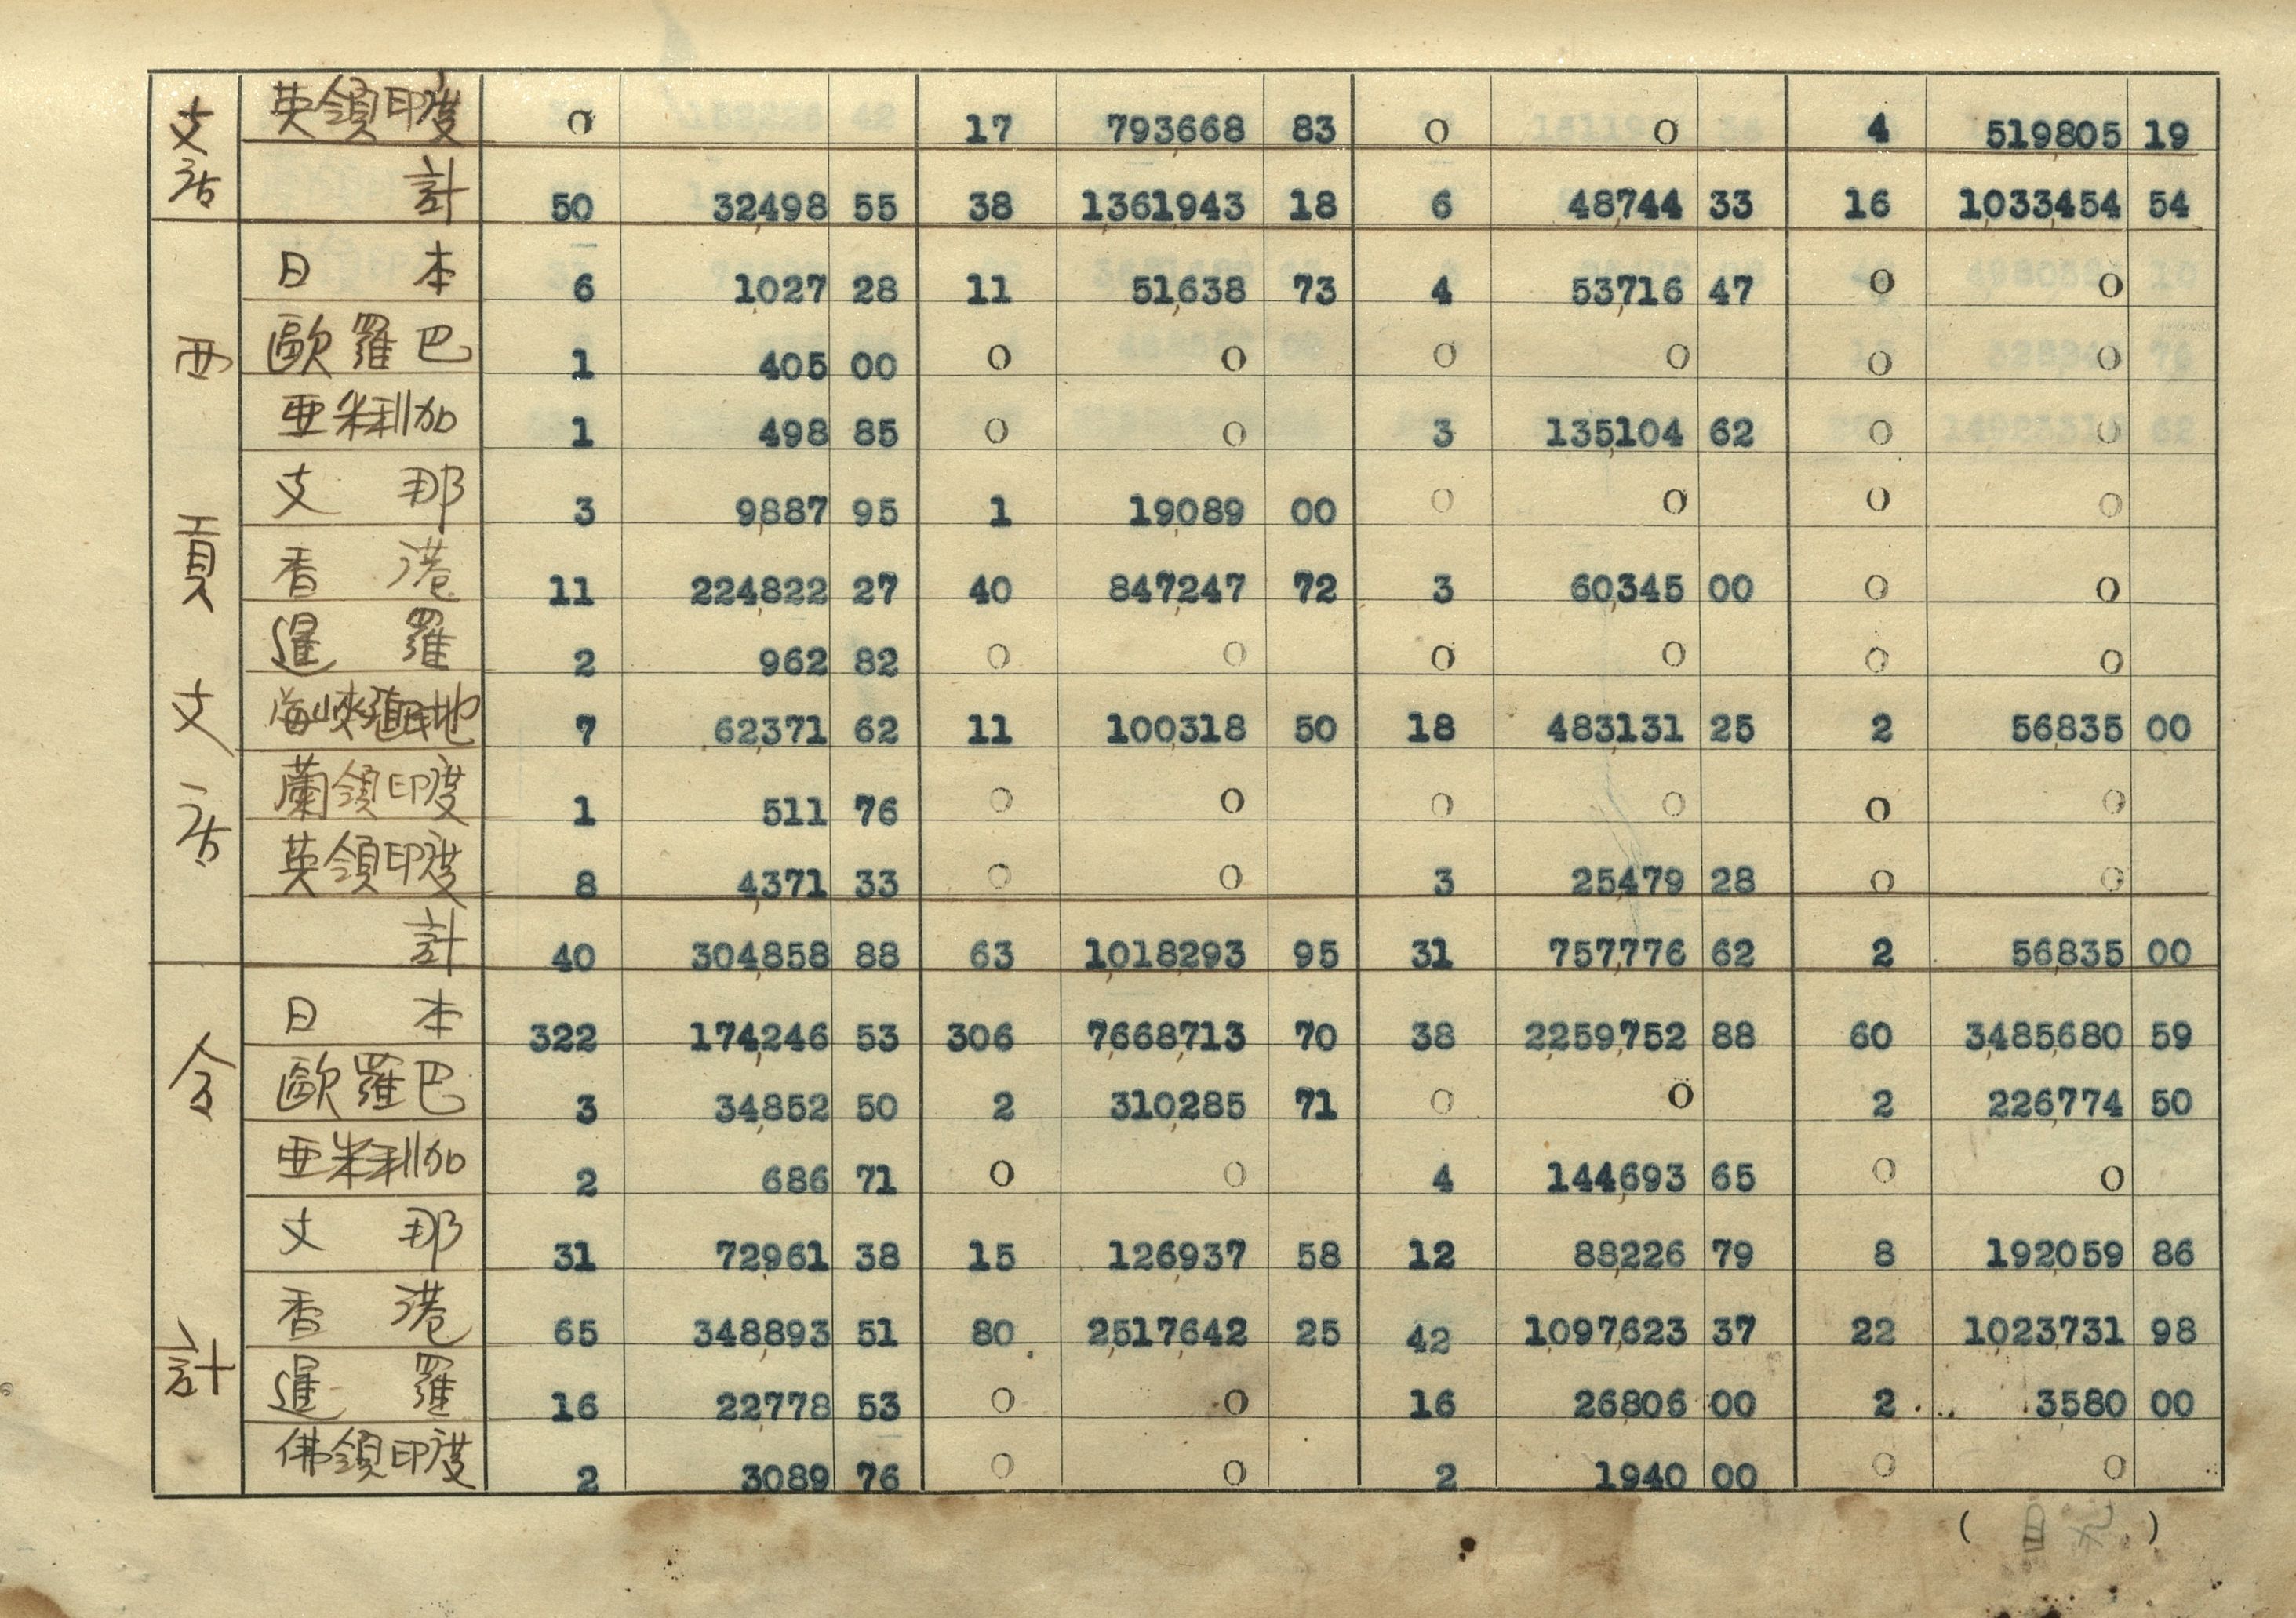 支店 英領印度 0 17 793,668 83 0 0 4 519,805 19
計 50 32,498 55 38 1,361,943 18 6 48,744 33 16 1,033,454 54
西貢支店 日本 6 1,027 28 11 51,638 73 4 53,716 47 0 0
歐羅巴 1 405 00 0 0 0 0 0 0
亜米利加 1 498 85 0 0 3 135,104 62 0 0
支那 3 9,887 95 1 19,089 00 0 0 0 0
香港 11 224,822 27 40 847,247 72 3 60,345 00 0 0
暹羅 2 962 82 0 0 0 0 0 0
海峽殖民地 7 62,371 62 11 100,318 50 18 483,131 25 2 56,835 00
蘭領印度 1 511 76 0 0 0 0 0 0
英領印度 8 4,371 33 0 0 3 25,479 28 0 0
計 40 304,858 88 63 1,018,293 95 31 757,776 62 2 56,835 00
合計 日本 322 174,246 53 306 7,668,713 70 38 2,259,752 88 60 3,485,680 59
歐羅巴 3 34,852 50 2 310,285 71 0 0 2 226,774 50
亜米利加 2 686 71 0 0 4 144,693 65 0 0
支那 31 72,961 38 15 126,937 58 12 88,226 79 8 192,059 86
香港 65 348,893 51 80 2,517,642 25 42 1,097,623 37 22 1,023,731 98
暹羅 16 22,778 53 0 0 16 26,806 00 2 3,580 00
佛領印度 2 3089 76 0 0 2 1940 00 0 0